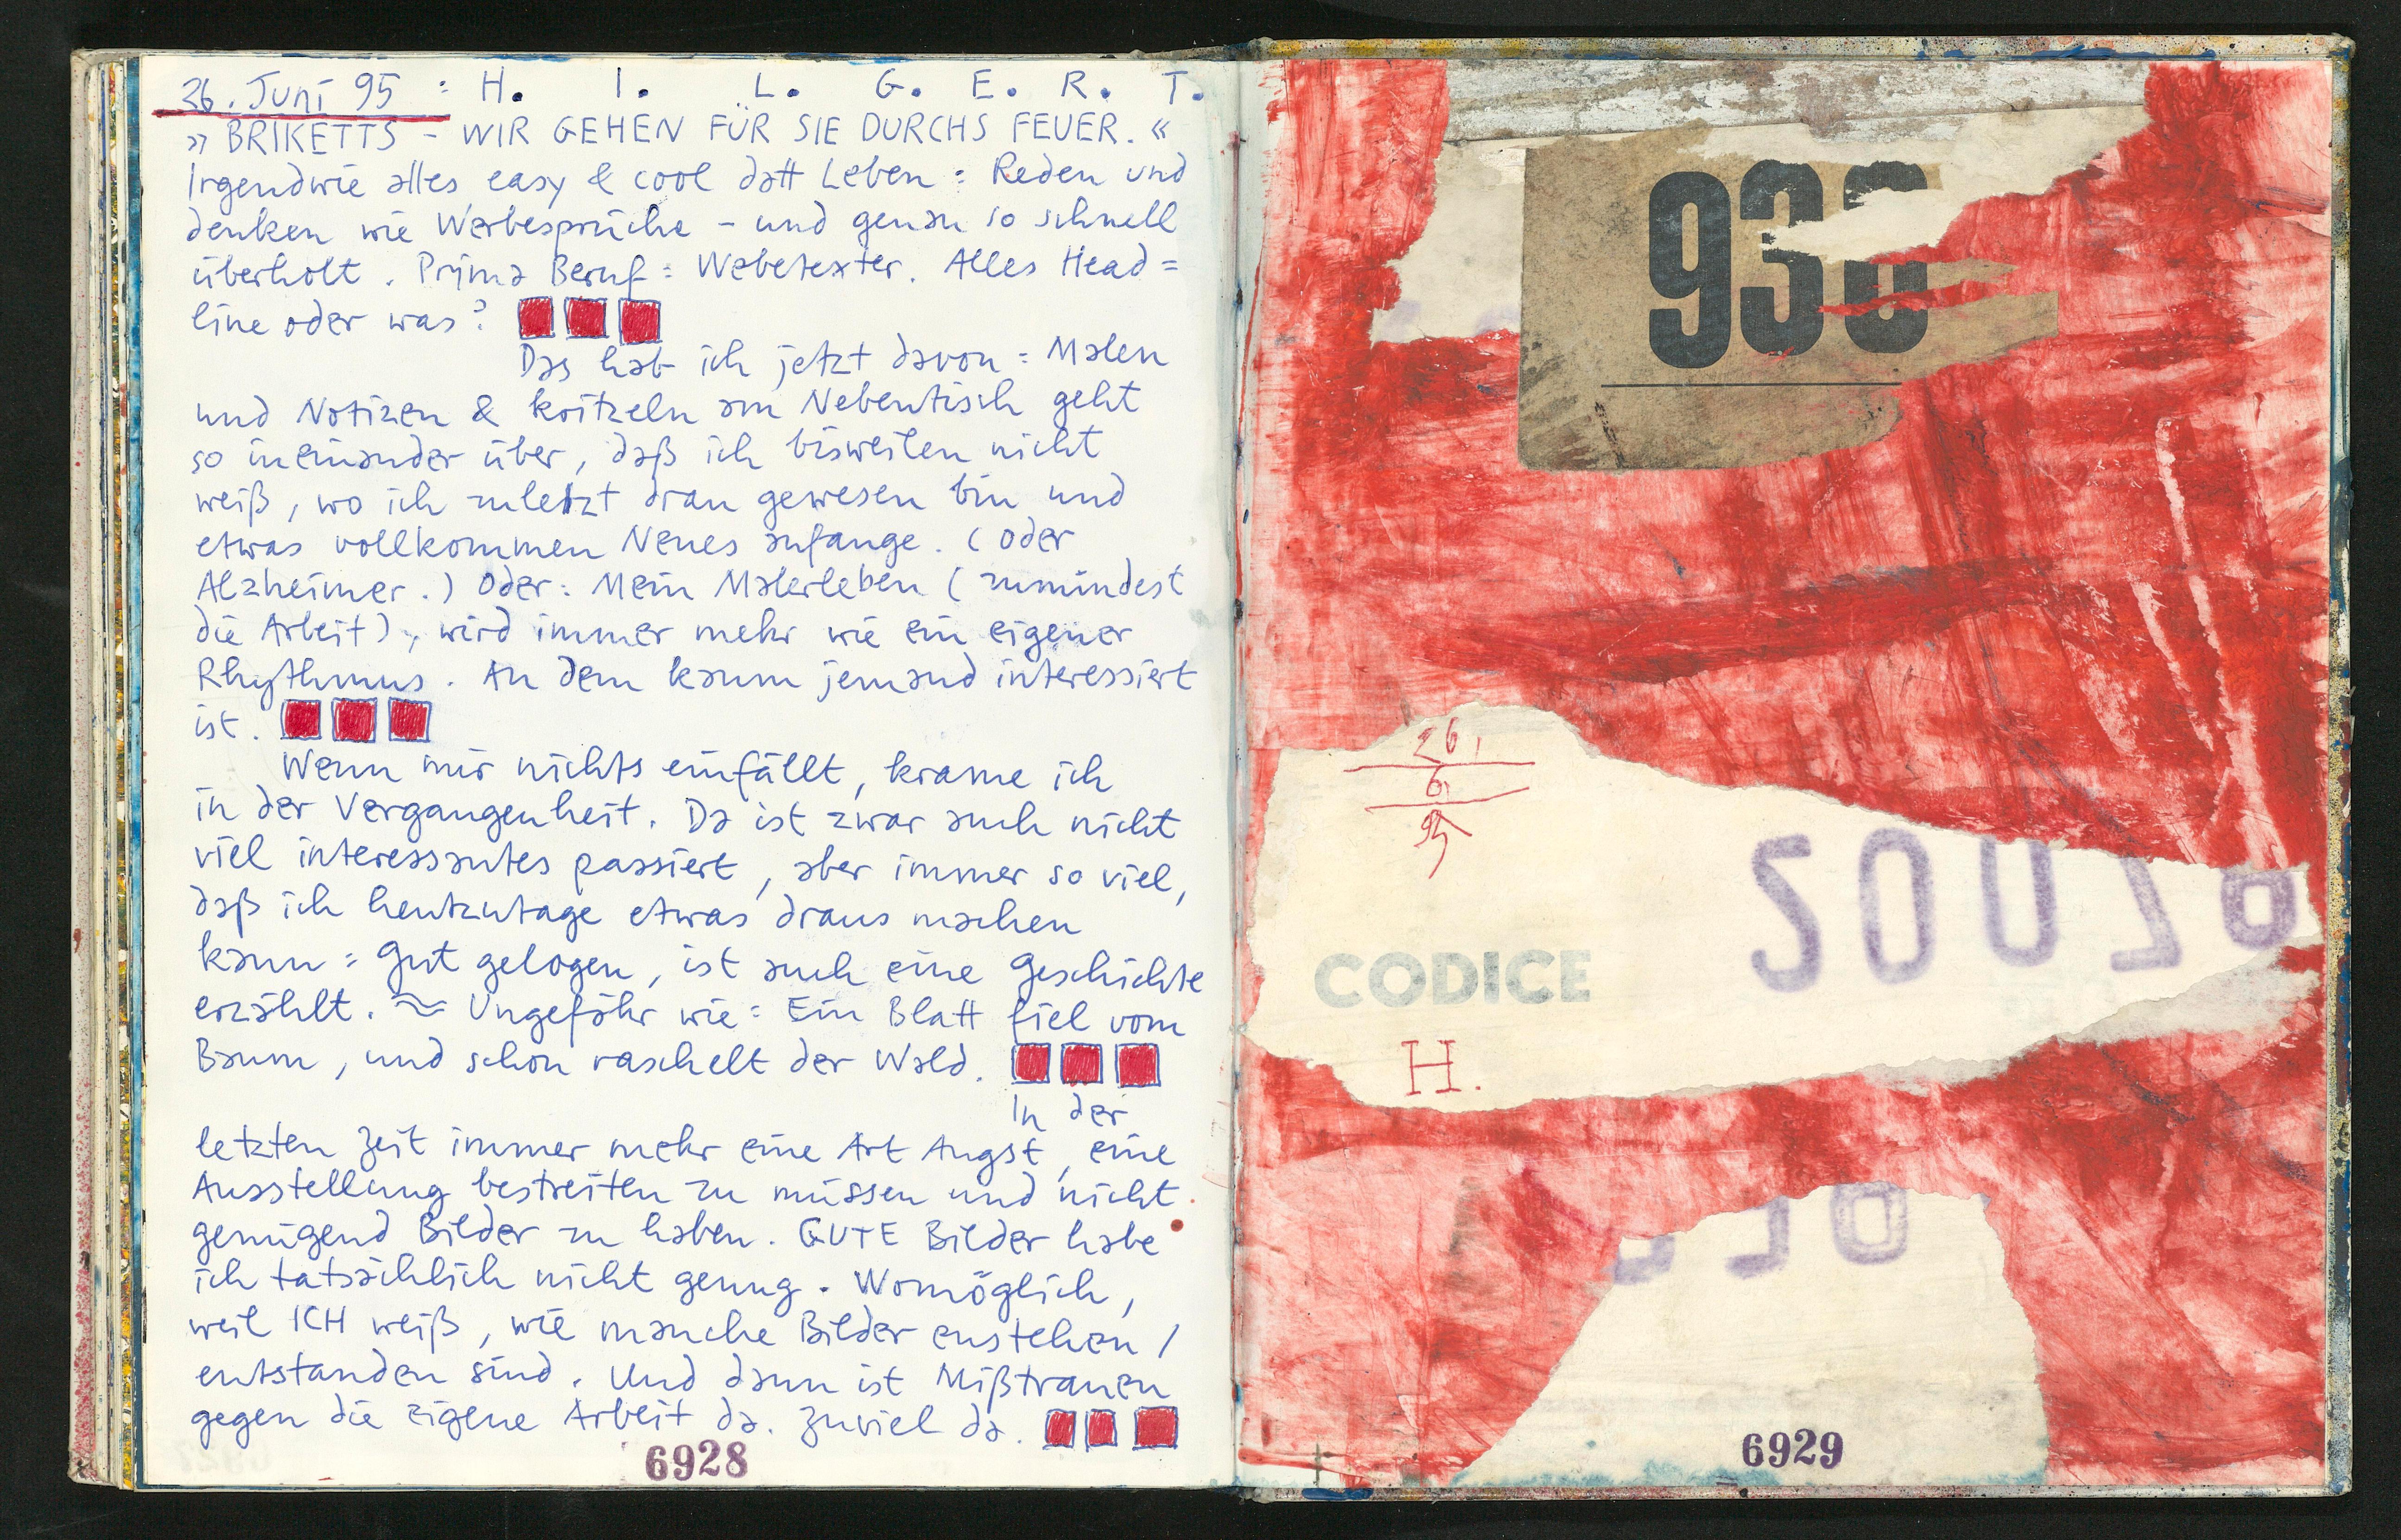 26. Juni 95 : H. I. L. G. E. R. T.
» BRIKETTS – WIR GEHEN FÜR SIE DURCHS FEUER. «
Irgendwie alles easy & cool datt Leben : Reden und
denken wie Werbesprüche – und genau so schnell
überholt. Prima Beruf : Webetexter. Alles Head=
line oder was?
Das hab ich jetzt davon : Malen
und Notizen & kritzeln am Nebentisch geht
so ineinander über, daß ich bisweilen nicht
weiß, wo ich zuletzt dran gewesen bin und
etwas vollkommen Neues anfange. (Oder
Alzheimer.) Oder: Mein Malerleben (zumindest
die Arbeit), wird immer mehr wie ein eigener
Rhythmus. An dem kaum jemand interessiert
ist.
Wenn mir nichts einfällt, krame ich
in der Vergangenheit. Da ist zwar auch nicht
viel interessantes passiert, aber immer so viel,
daß ich heutzutage etwas draus machen
kann : Gut gelogen, ist auch eine Geschichte
erzählt. ≈ Ungefähr wie: Ein Blatt fiel vom
Baum, und schon raschelt der Wald.
In der
letzten Zeit immer mehr eine Art Angst, eine
Ausstellung bestreiten zu müssen und nicht
genügend Bilder zu haben. GUTE Bilder habe
ich tatsächlich nicht genug. Womöglich,
weil ICH weiß, wie manche Bilder enstehen /
entstanden sind. Und dann ist Mißtrauen
gegen die eigene Arbeit da. Zuviel da.
6928
930
26,
6,
95
20076
CODICE
H.
6929